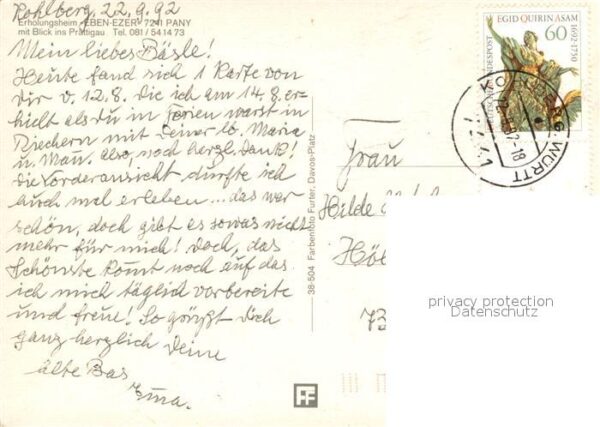 Rohlberg, 22.9.92
Erholungsheim „EBEN-EZER“ 7241 PANY
mit Blick ins Prättigau Tel. 081 / 54 14 73
Mein liebes Bäsle!
Heute fand sich 1 Karte von
Dir v. 12.8. die ich am 14.8. er-
hielt als du in Ferien warst in
Riechern mit Deiner lb. Maria
u. Man. Also, noch herzl. Dank!
Die Vorderansicht dürfte ich
auch mal erleben... das war
schön, doch gibt es sowas nicht
mehr für mich! Doch, das
Schönste komt noch auf das
ich mich täglich vorbereite
und freue! So grüßt Dich
ganz herzlich Deine
alte Bas
Ema.
38-504 Farbenfoto Furter, Davos-Platz
FF
EGID QUIRIN ASAM
1692-1750
60
DEUTSCHE BUNDESPOST
WÜRTT
92-18
Frau
Hilde
73
privacy protection
Datenschutz